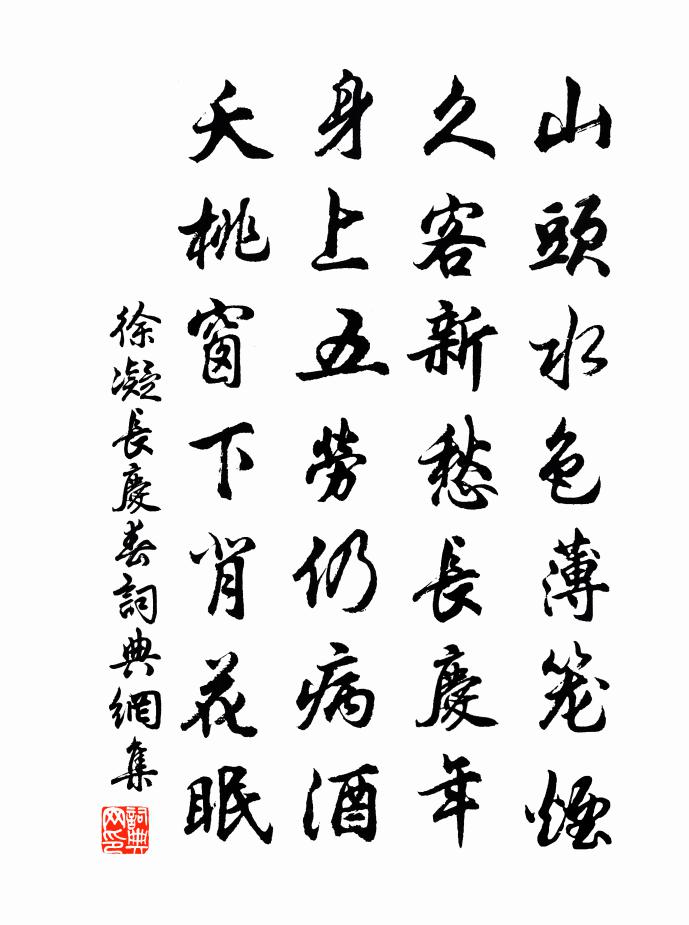 山頭水色薄笼煙
久客新愁長慶年
身上五勞仍病酒
夭桃窗下背花眠
徐凝長慶春詞典網集
詞典
网印